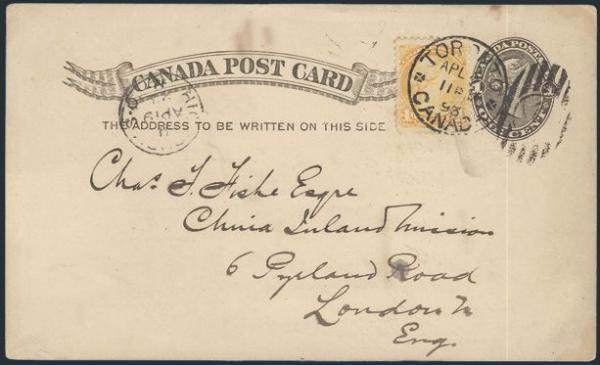 CANADA POST CARD
THE ADDRESS TO BE WRITTEN ON THIS SIDE
TORONTO
APL
11
93
CANADA
AP 19
Chas. J. Fishe Esqre
China Inland Mission
6 Pyrland Road
London N
Eng.